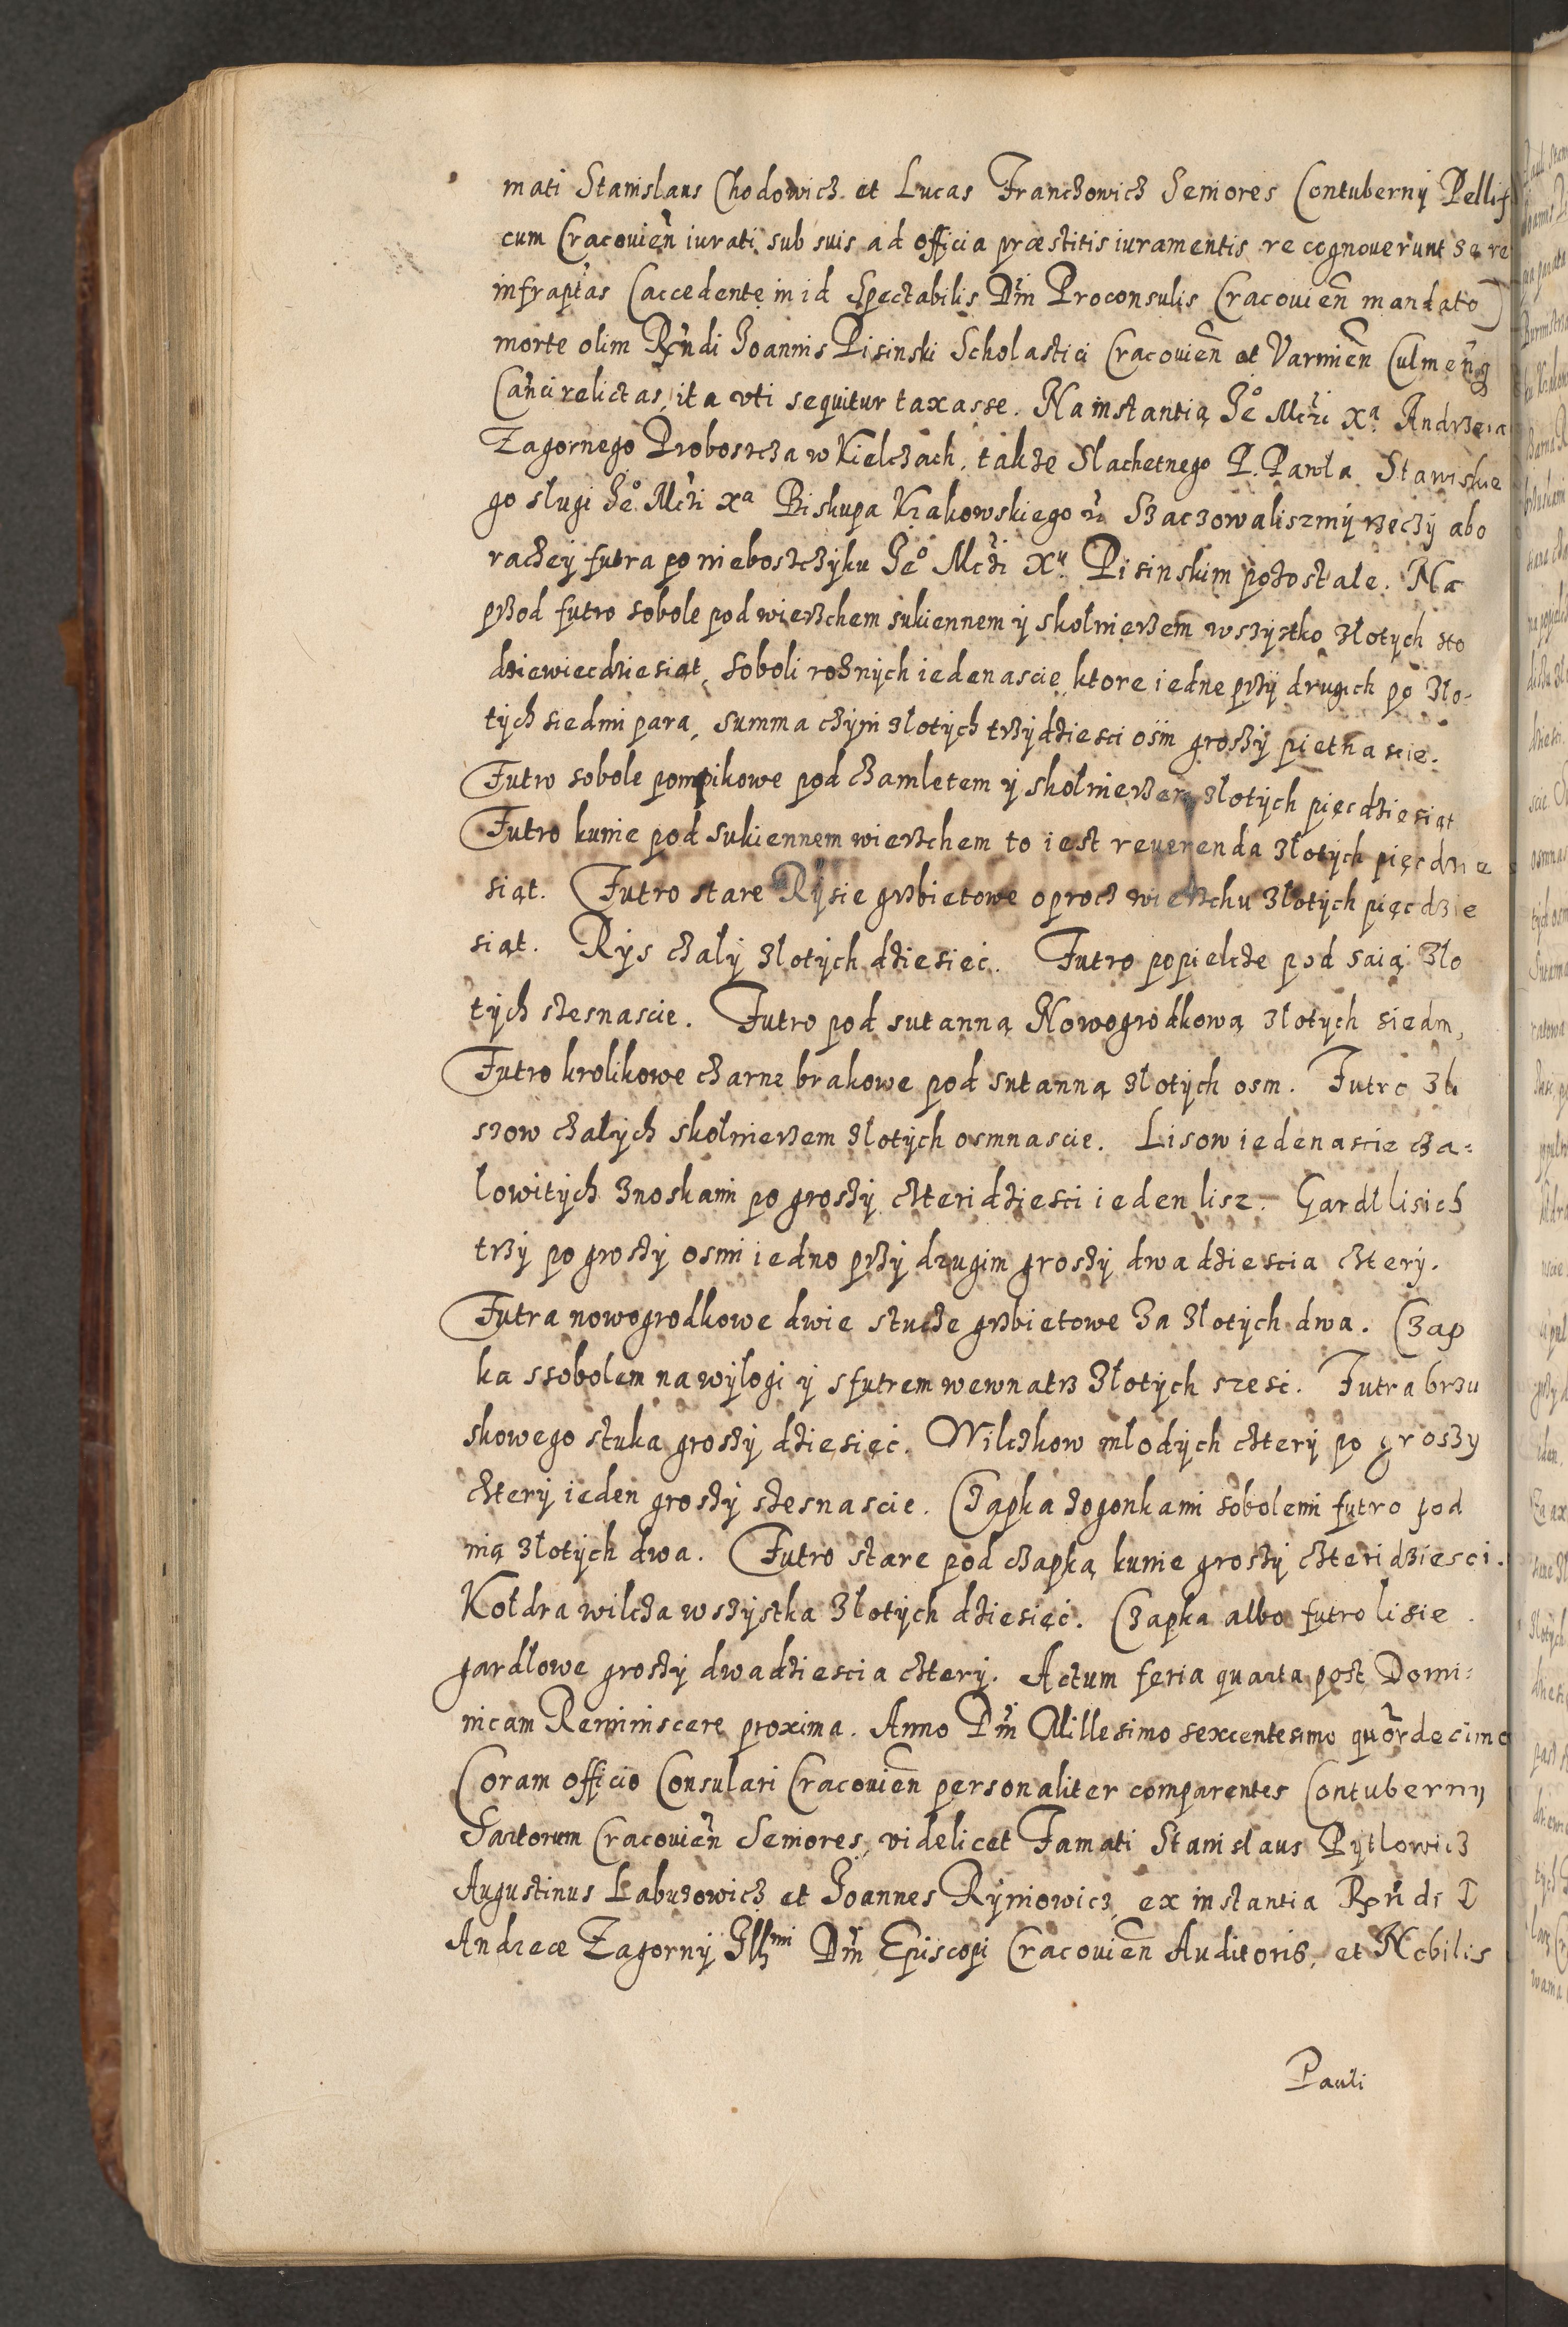 mati Stanislaus Chodowicz et Lucas Franczowicz Seniores Contubernÿ Pellif
cum Cracouien̄ iurati sub suis ad officia præstitis iuramentis recognouerunt se re
infraptas (accedente in id Spectabilis Dn̄i Proconsulis Cracouien̄ mandato)
morte olim Rn̄di Joannis Pisinski Scholastici Cracouien̄ et Varmien̄ Culmen̄q
Can̄ci relictas, ita vti sequitur taxasse. Na instantią Jeᵒ Mczi Xᵃ Andrzeia
Zagornego Proboszcza w Kielczach, takze Slachetnego P. Pawła Stawiskie
go sługi Jeᵒ Mczi Xᵃ Biskupa Krakowskiego Szaczowaliszmÿ rzeczÿ abo
raczeÿ futra po nieboszczÿku Jeᵒ Mczi Xᵘ Pisinskim pozostałe. Na
przod futro sobole pod wierzchem sukiennem ÿ skołnierzem wszystko złotych sto
dziewiecdziesiąt, soboli roznÿch iedenascie, ktore iedne przÿ drugich po zło-
tÿch siedmi para, summa czÿni złotÿch trzÿdziesci osm groszÿ pietnascie.
Futro sobole pompikowe pod czamletem ÿ skołnierzem złotÿch pięcdziesiąt
Futro kunie pod sukiennem wierzchem to iest reuerenda złotÿch pięcdzie
siąt. Futro stare Rÿsie grzbietowe oprocz wierzchu złotÿch pięcdzie
siąt. Rÿs czałÿ złotÿch dziesięć. Futro popielcze pod saią zło
tÿch szesnascie. Futro pod sutanną Nowogrodkową złotych siedm,
Futro krolikowe czarne brakowe pod sutanną złotÿch osm. Futro zli
szow czałÿch skołnierzem złotÿch osmnascie. Lisow iedenascie cza=
łowitÿch znoskami po groszÿ czteridziesci ieden lisz. Gardł lisich
trzÿ po groszÿ osmi iedno przÿ drugim groszÿ dwadziescia czterÿ.
Futra nowogrodkowe dwie stucze grzbietowe za złotÿch dwa. Czap
ka ssobolem na wÿłogi ÿ sfutrem wewnatrz złotÿch szesc. Futra brzu
skowego stuka groszÿ dziesięć. Wilczkow młodÿch czterÿ po groszy
czterÿ ieden groszÿ szesnascie. Czapka zogonkami sobolemi futro pod
nią złotÿch dwa. Futro stare pod czapką kunie groszÿ czteridziesci.
Kołdra wilcza wszÿstka złotÿch dziesięć. Czapka albo futro lisie
gardłowe groszÿ dwadziescia czterÿ. Actum feria quarta post Domi=
nicam Reminiscere proxima. Anno Dn̄i Millesimo sexcentesimo quõrdecimo
Coram officio Consulari Cracouien̄ personaliter comparentes Contubernÿ
Sartorum Cracouien̄ Seniores, videlicet Famati Stanislaus Pÿtlowicz
Augustinus Labuzowicz et Joannes Rÿniowicz, ex instantia Rn̄di D
Andreæ Zagornÿ Illᵐⁱ Dn̄i Episcopi Cracouien̄ Auditoris, et Nobilis
Pauli